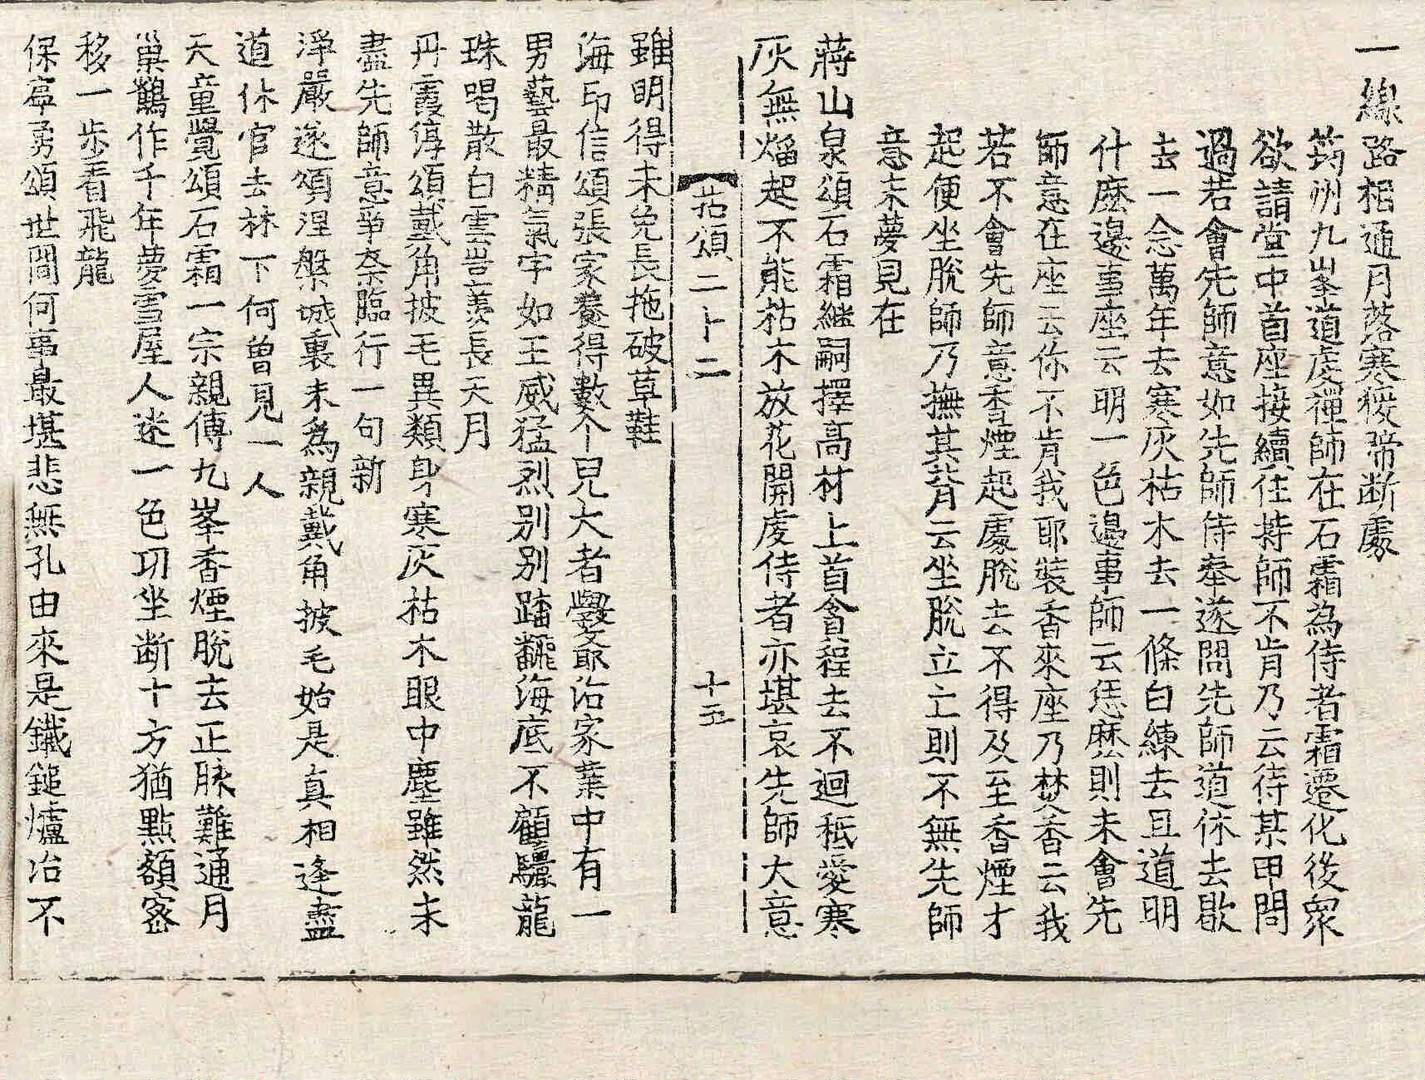 一線路相通月落寒猨啼断處
筠州九峯道虔禪師在石霜為侍者霜遷化後衆
欲請堂中首座接續住持師不肯乃云待某甲問
過若會先師意如先師侍奉遂問先師道休去歇
去一念萬年去寒灰枯木去一條白練去且道明
什麽邊事座云明一色邊事師云恁麽則未會先
師意在座云你不肯我耶裝香來座乃焚香云我
若不會先師意香煙起處脫去不得及至香煙才
起便坐脫師乃撫其背云坐脫立亡則不無先師
意未夢見在
蔣山泉頌石霜継嗣擇高材上首貪程去不迴秖愛寒
灰無熖起不能枯木放花開虔侍者亦堪哀先師大意
拈頌二十二 十五
雖明得未免長拖破草鞋
海印信頌張家養得數个兒大者㝅爺治家業中有一
男藝最精氣宇如王威猛烈別別踏飜海底不顧驪龍
珠喝散白雲豈羨長天月
丹霞淳頌戴角披毛異類身寒灰枯木眼中塵雖然未
盡先師意爭奈臨行一句新
淨嚴遂頌涅槃城裏未為親戴角披毛始是真相逢盡
道休官去林下何曾見一人
天童覺頌石霜一宗親傳九峯香煙脫去正脉難通月
巢鶴作千年夢雪屋人迷一色功坐断十方猶點額密
移一步看飛龍
保寧勇頌世間何事最堪悲無孔由來是鐵鎚爐冶不